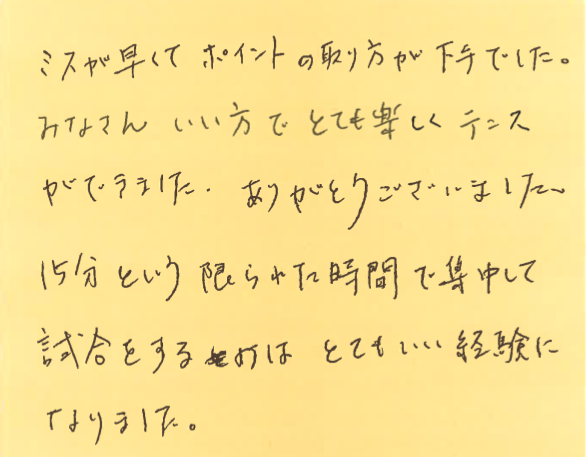 ミスが早くて ポイントの取り方が下手でした。
みなさん いい方で とても楽しく テニス
ができました. ありがとうございました。
15分という 限られた時間で集中して
試合をする は とてもいい経験に
なりました。